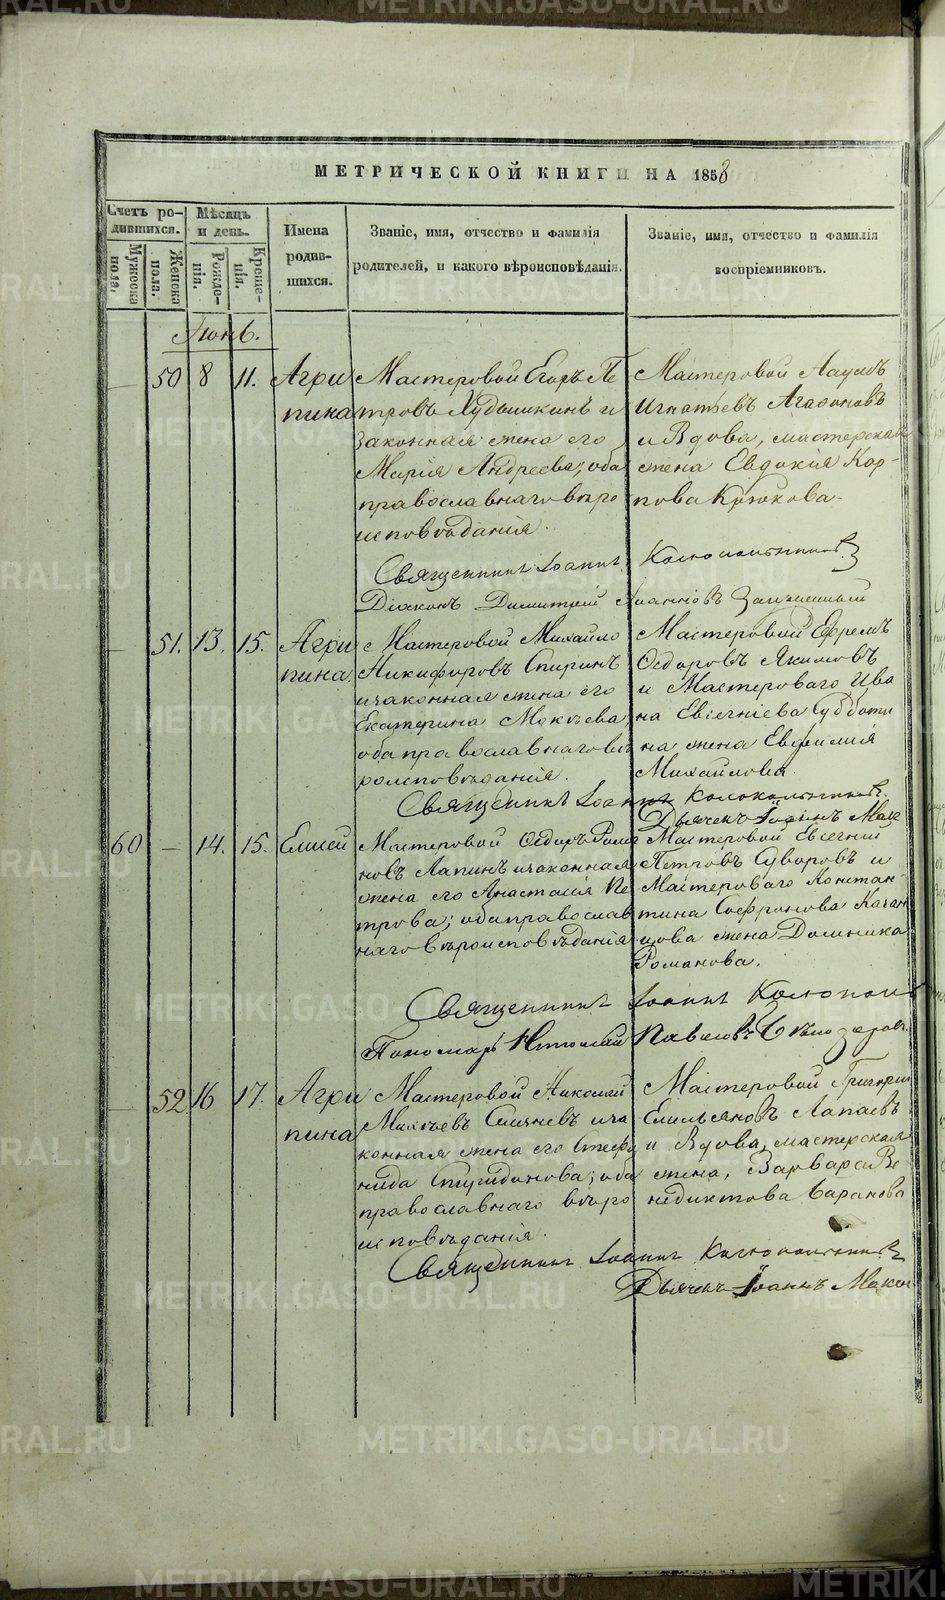 МЕТРИЧЕСКОЙ КНИГИ НА 1858
Счетъ родившихся.
Мужеска пола.
Женска пола.
Мѣсяцъ и день.
Рожденія.
Крещенія.
Имена родившихся.
Званіе, имя, отчество и фамилія
родителей, и какого вѣроисповѣданія.
Званіе, имя, отчество и фамилія
воспріемниковъ.
Іюнь.
— 50 8 11. Агри
пина
Мастеровой Егоръ Пе
тровъ Худышкинъ и
законная жена его
Марія Андреева; оба
православнаго вѣро
исповѣданія.
Мастеровой Наумъ
Игнатьевъ Агафоновъ
и Вдова, мастерская
жена Евдокія Кар-
пова Крюкова.
Священникъ Іоаннъ
Діаконъ Димитрій Іоанновъ
— 51. 13. 15. Агри
пина.
Мастеровой Михайло
Никифоровъ Спиринъ
и законная жена его
Екатерина Мокѣева,
оба православнаго вѣ
роисповѣданія.
Мастеровой Ефремъ
Ѳедоровъ Якимовъ
и Мастероваго Ива
на Евгеніева Суботи
на жена Евфимія
Михайлова.
Священникъ Іоаннъ
Дьячекъ Іоаннъ
60 — 14. 15. Елисей
Мастеровой Ѳедоръ Рома
новъ Лапинъ и законная
жена его Анастасія Пе
трова; оба православ
наго вѣроисповѣданія
Мастеровой Евгеній
Петровъ Суворовъ и
Мастероваго Констан-
тина Софронова Качан
цова жена Домника
Романова.
Священникъ Іоаннъ
Пономарь Николай Павловъ Бѣлозеровъ
— 52 16 17. Агри
пина
Мастеровой Николай
Михѣевъ и за
конная жена его Стефа
нида Спиридонова; оба
православнаго вѣро
исповѣданія.
Мастеровой Григорій
Емельяновъ Лапаевъ
и Вдова, мастерская
жена, Варвара Ве-
недиктова Баранова
Священникъ Іоаннъ
Дьячекъ Іоаннъ
METRIKI.GASO-URAL.RU